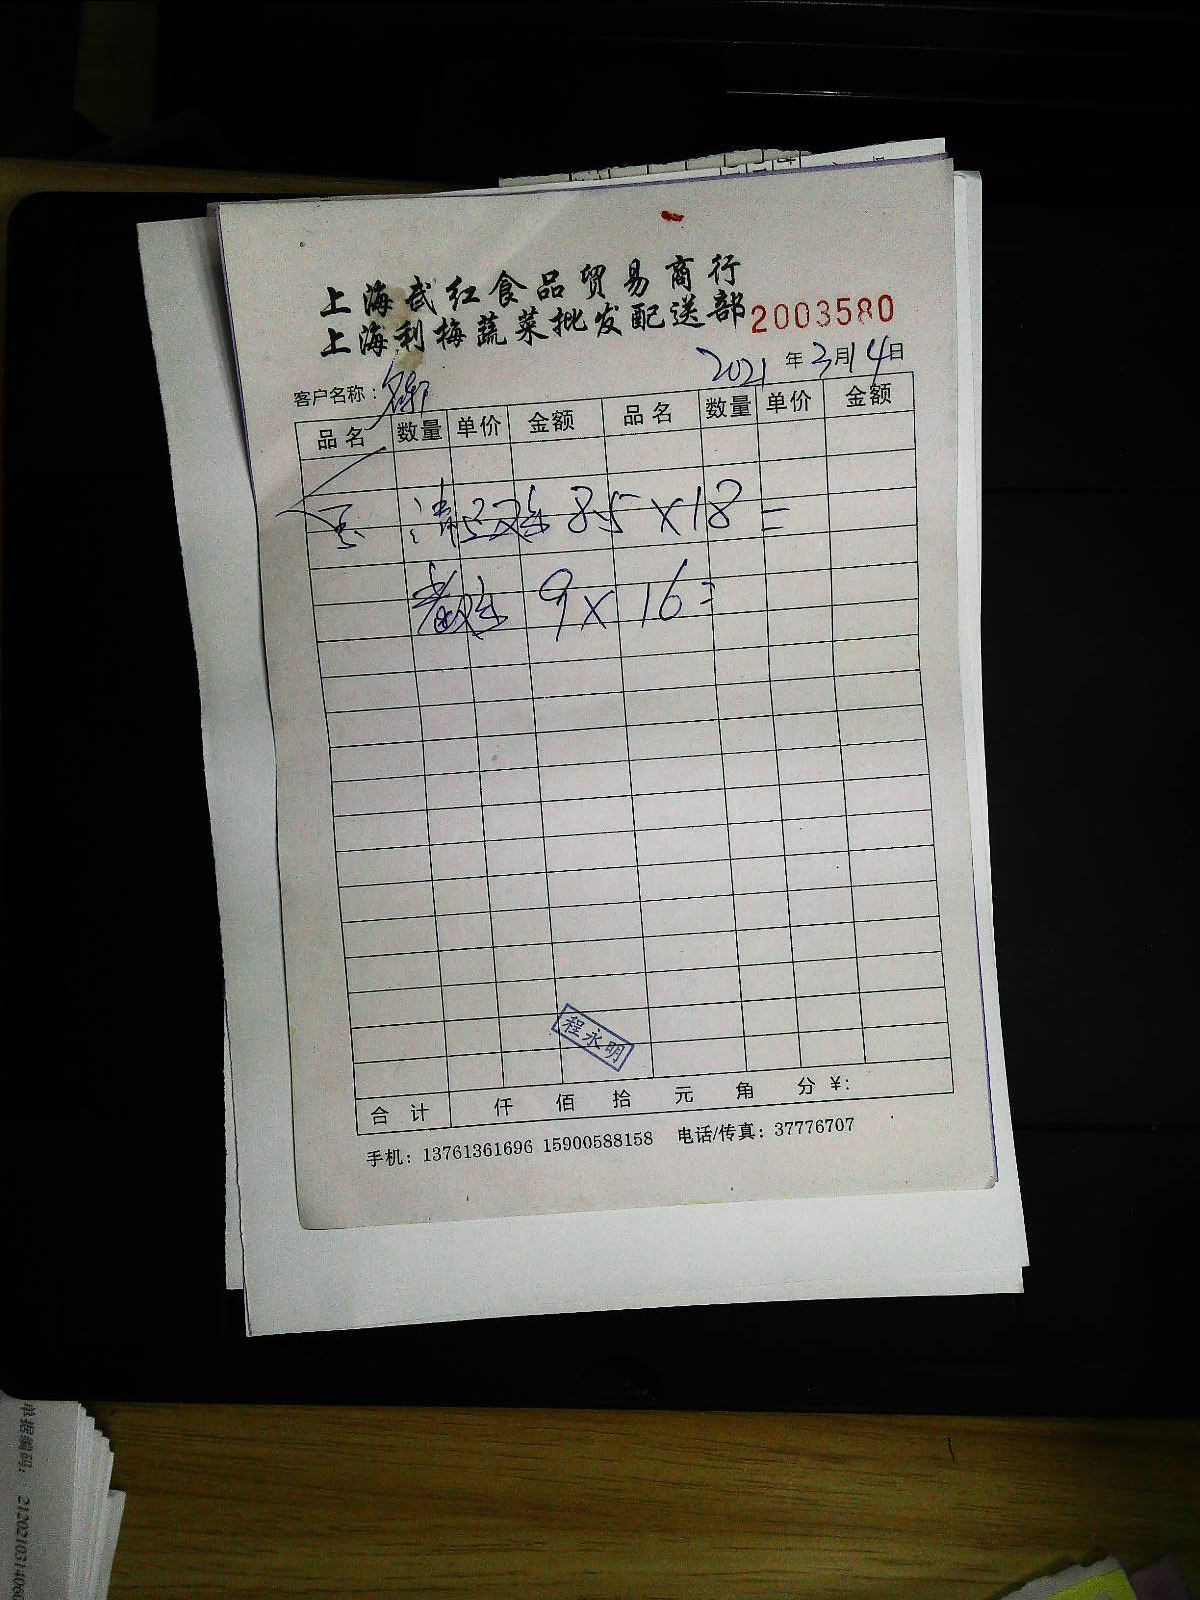 上海武红食品贸易商行
上海利梅蔬菜批发配送部 2003580
客户名称： 2021年3月14日
品名 数量 单价 金额 品名 数量 单价 金额
85×18=
9×16=
程永明
合计 仟 佰 拾 元 角 分 ¥:
手机：13761361696 15900588158 电话/传真：37776707
单据编码： 2120210314060